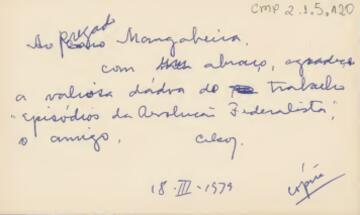 CMP 2.1.5.120
Ao Prezado Mangabeira,
com abraço, agradeço
a valiosa dádiva do trabalho
"Episódios da Revolução Federalista",
o amigo, Celso
18-III-1979
cópia